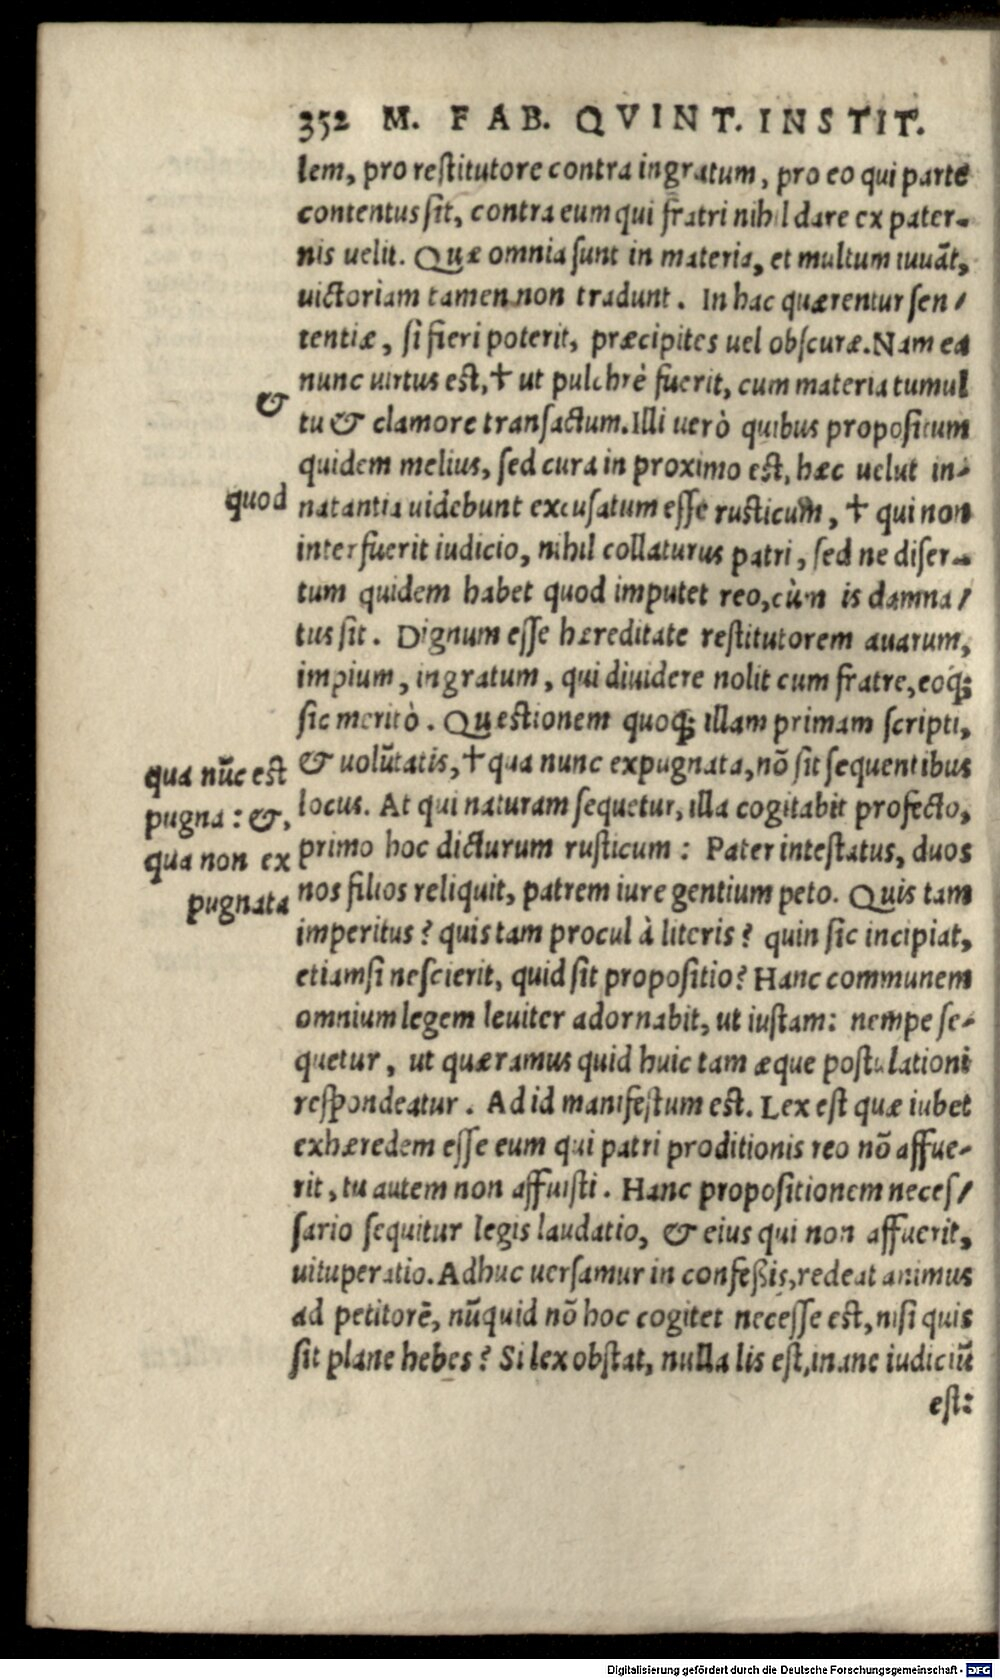 352 M. FAB. QVINT. INSTIT.
lem, pro restitutore contra ingratum, pro eo qui parte
contentus sit, contra eum qui fratri nihil dare ex pater-
nis uelit. Quæ omnia sunt in materia, et multum iuuāt,
uictoriam tamen non tradunt. In hac quærentur sen/
tentiæ, si fieri poterit, præcipites uel obscuræ. Nam ea
nunc uirtus est, † ut pulchrè fuerit, cum materia tumul
&
tu & clamore transactum. Illi uerò quibus propositum
quidem melius, sed cura in proximo est, hæc uelut in-
quod
natantia uidebunt excusatum esse rusticum, † qui non
interfuerit iudicio, nihil collaturus patri, sed ne diser-
tum quidem habet quod imputet reo, cùm is damna/
tus sit. Dignum esse hæreditate restitutorem auarum,
impium, ingratum, qui diuidere nolit cum fratre, eoq́;
sic meritò. Quæstionem quoq; illam primam scripti,
& uolūtatis, † qua nunc expugnata, nō sit sequentibus
qua nūc est
pugna: &,
qua non ex
pugnata
locus. At qui naturam sequetur, illa cogitabit profecto,
primo hoc dicturum rusticum: Pater intestatus, duos
nos filios reliquit, patrem iure gentium peto. Quis tam
imperitus? quis tam procul à literis? quin sic incipiat,
etiamsi nescierit, quid sit propositio? Hanc communem
omnium legem leuiter adornabit, ut iustam: nempe se-
quetur, ut quæramus quid huic tam æque postulationi
respondeatur. Ad id manifestum est. Lex est quæ iubet
exhæredem esse eum qui patri proditionis reo nō affue-
rit, tu autem non affuisti. Hanc propositionem neces/
sario sequitur legis laudatio, & eius qui non affuerit,
uituperatio. Adhuc uersamur in confeßis, redeat animus
ad petitorē, nūquid nō hoc cogitet necesse est, nisi quis
sit plane hebes? Si lex obstat, nulla lis est, inane iudiciū
est:
Digitalisierung gefördert durch die Deutsche Forschungsgemeinschaft - DFG